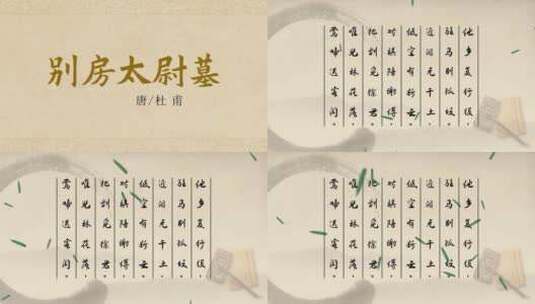 别房太尉墓
唐/杜 甫
他乡复行役
驻马别孤坟
近泪无干土
低空有断云
对棋陪谢傅
把剑觅徐君
唯见林花落
莺啼送客闻
他乡复行役
驻马别孤坟
近泪无干土
低空有断云
对棋陪谢傅
把剑觅徐君
唯见林花落
莺啼送客闻
他乡复行役
驻马别孤坟
近泪无干土
低空有断云
对棋陪谢傅
把剑觅徐君
唯见林花落
莺啼送客闻